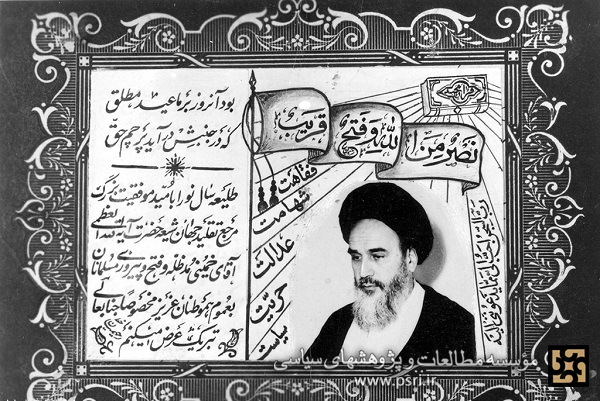 بود آنروز بر ما عید مطلق
که در جنبش درآید پرچم حق
طلیعه سال نو را با امید موفقیت بزرگ
مرجع تقلید جهان شیعه حضرت آیة الله العظمی
آقای خمینی مدظله و فتح و پیروزی مسلمانان
بعموم هموطنان عزیز خصوصا جنابعالی
تبریک عرض می‌کنم
نصر من الله و فتح قریب
فقاهت
شهامت
عدالت
حریت
سیاست
موسسه مطالعات و پژوهشهای سیاسی
www.psri.ir